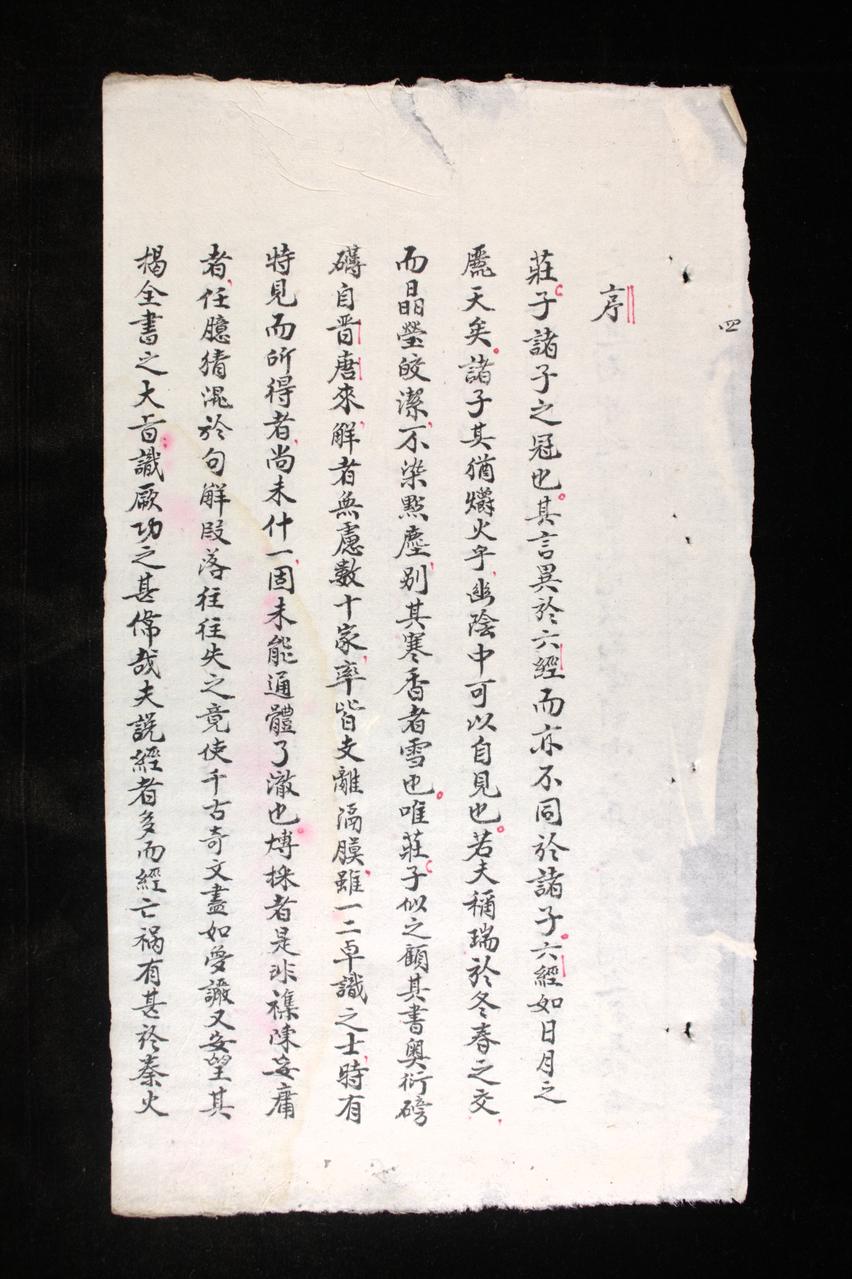 四
序
莊子諸子之冠也其言異於六經而亦不同於諸子六經如日月之
麗天矣諸子其猶爝火乎幽陰中可以自見也若夫稱瑞於冬春之交
而晶瑩皎潔不染點塵別其寒香者雪也唯莊子似之顧其書奧衍磅
礴自晋唐來解者無慮數十家率皆支離隔膜雖一二卓識之士時有
特見而所得者尚未什一固未能通體了澈也博採者是非襍陳妄庸
者任臆猜混於句解段落往往失之竟使千古奇文盡如受讞又安望其
揭全書之大旨識厥功之甚偉哉夫説經者多而經亡禍有甚於秦火